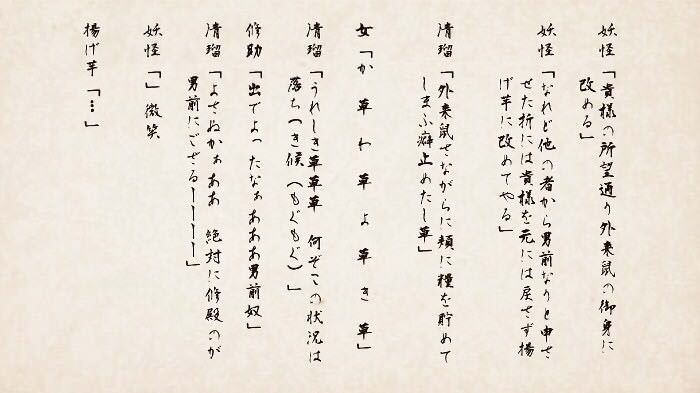 妖怪「貴様の所望通り外来鼠の御身に
改める」
妖怪「なれど他の者から男前なりと申さ
せた折には貴様を元には戻さず揚
げ芋に改めてやる」
清瑠「外来鼠さながらに頬に糧を貯めて
しまふ癖止めたし草」
女「か 草 わ 草 よ 草 き 草」
清瑠「うれしき草草草 何ぞこの状況は
落ちつき候(もぐもぐ)」
修助「出でよったなぁあああ男前奴」
清瑠「よさぬかぁああ 絶対に修殿のが
男前にござるーーーー」
妖怪「」微笑
揚げ芋「…」